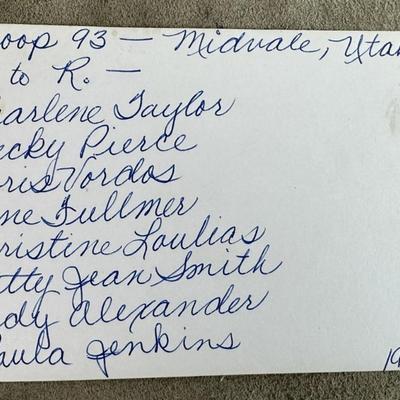 oop 93 — Midvale, Utah
to R. —
arlene Taylor
ecky Pierce
oris Vordos
ne Fullmer
ristine Loulias
tty Jean Smith
dy Alexander
aula Jenkins
19